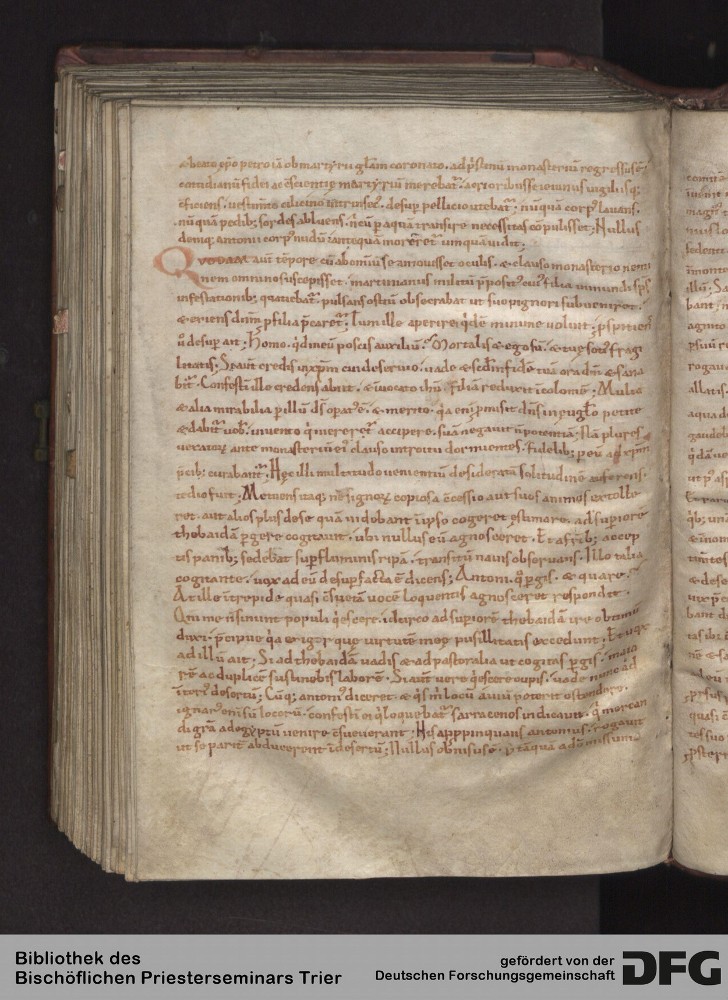 & beato ep̄o petro iā ob martẏrii gl̄am coronato. ad p̄stinū monasteriū regressus ē;
cotidianū fidei ac c̄scientie martẏriū merebat᷑. acrioribus se ieiuniis uigiliisq;
efficiens. uestim̄to cilicino intrinsec᷒. desup pellicio utebat᷑; nūquā corp᷒ lauans.
nūquā pedib; sordes abluens. n̄ cū p aquā transire necessitas cōpulisset; Nullus
deniq; antonii corp᷒ nudū antequā moreret᷑ umquā uidit;
Quodam aut̄ tēpore cū ab omniū se amouisset oculis. & clauso monasterio nemi
nem omnino suscepisset. martinianus militū p̄positus cui᷒ filia inmundi sp̄s
infestationib; quatiebat᷑. pulsans ostiū obsecrabat ut suo pignori subueniret.
& exiens dn̄m p filia p̄caret᷑; Tum ille aperire q̇dē minime uoluit; p spiciens
ū desup ait; Homo. q̇d meū poscis auxiliū. Mortalis & ego sū. & tuę soci᷒ frag
litatis; Si aut̄ credis in xp̄m cui deseruio. uade & scd̄m fidē tuā ora dn̄m & sana
bit᷑. Confestī ille credens abiit. & inuocato ih̄u. filiā reduxit īcolomē; Multa
& alia mirabilia p illū dn̄s opat᷒ ē. & merito. q̇a eni p̄misit dn̄s in euḡlo petite
& dabit᷑ uob̄. inuento q̇ mereret᷑ accipere. suā negauit n̄ potentiā; Nā plures
ueratorū ante monasteriū ei᷒ clauso introitu dormientes. fidelib; p eū ad xp̄m
p̄cib; curabant᷑. Hęc illi multitudo uenientiū desideratā solitudinē auferens.
tedio fuit. Metuens itaq; ne signorū copiosa c̄cessio aut suos animos extolle
ret. aut alios plus de se quā uidebant ī ipso cogeret ęstimare. ad supiorē
thebaidā pgere cogitauit. ubi nullus eū agnosceret. Et a fr̄ib; accep
tis panib; sedebat sup fluminis ripā. transitū nauis obseruans. Illo talia
cogitante. uox ad eū desup facta ē dicens; Antoni. q̇ pgis. & quare.
At ille ītrepide quasi c̄suetā uocē loquentis agnosceret respondit.
Qm̄ me n̄ sinunt populi q̇escere. idcirco ad supiorē thebaidā ire obtimū
duxi. p̄cipue q̇a exigor que uirtutē meę pusillitatis excedunt; Et uox
ad illū ait; Si ad thebaidā uadis & ad pastoralia ut cogitas pgis. maio
rē ac duplicē sustinebis laborē. Si aut̄ uere q̇escere cupis. uade nunc ad
īteri᷒ desertū; Cūq; antoni᷒ diceret. & q̇s m̄ locū auiū poterit ostendere.
ignar᷒ eni sū locorū. confestī ei q̇ loquebat᷑ sarracenos indicauit. q̇ mercan
di gr̄a ad ęgẏptū uenire c̄sueuerant. His appropinquans antonius. rogauit
ut se parit᷑ abducerent ī desertū; Nullus obnisus ē. p tāquā a dō missum
Bibliothek des
Bischöflichen Priesterseminars Trier
gefördert von der
Deutschen Forschungsgemeinschaft
DFG